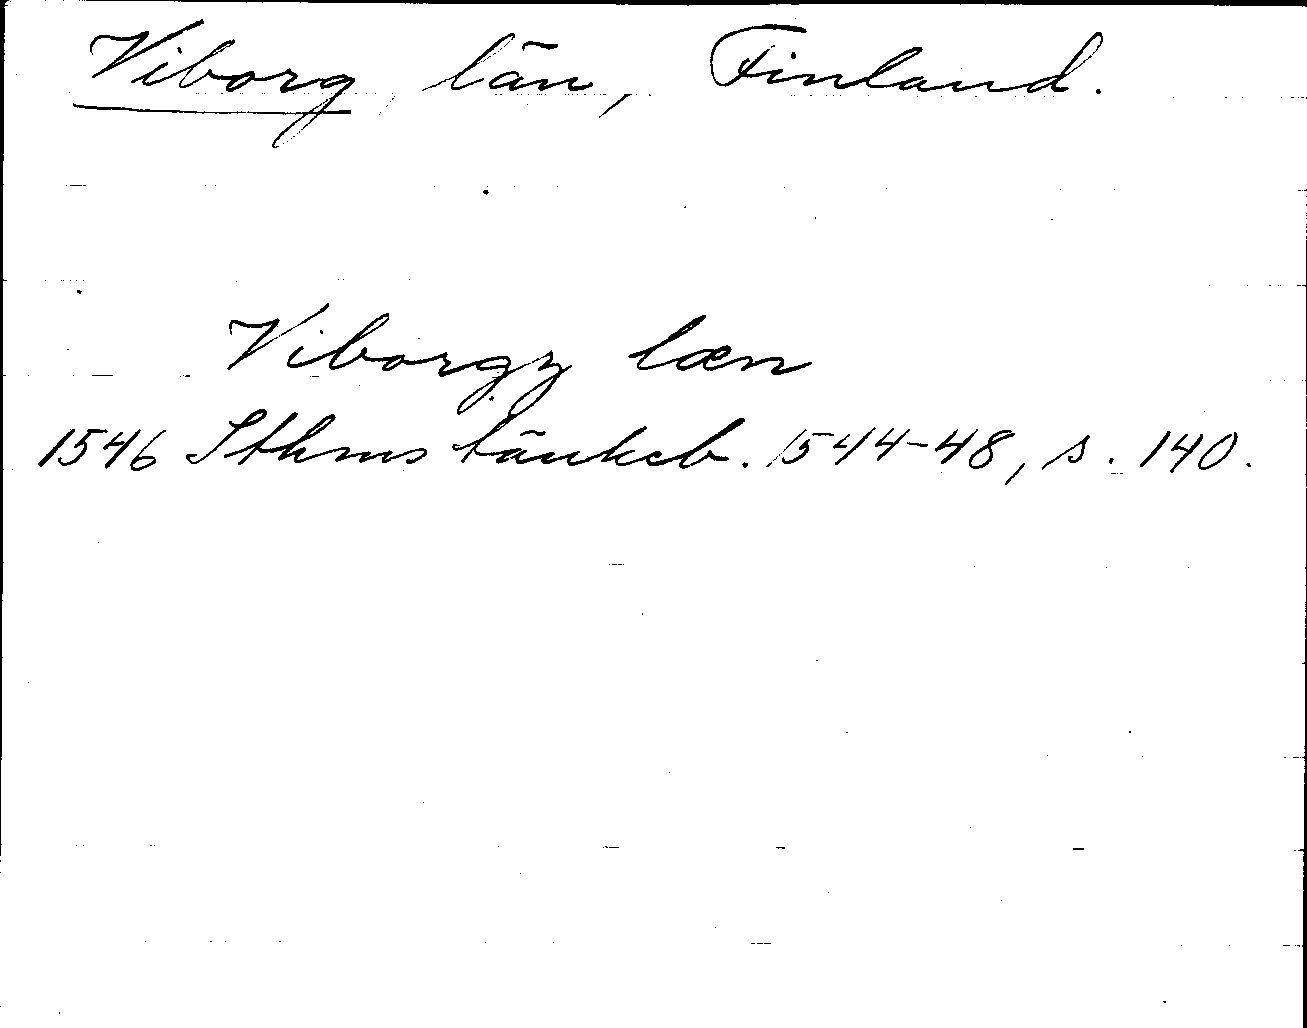 Viborg, län, Finland.
Viborgz læn
1546 Sthms tänkeb. 1544-48, s. 140.